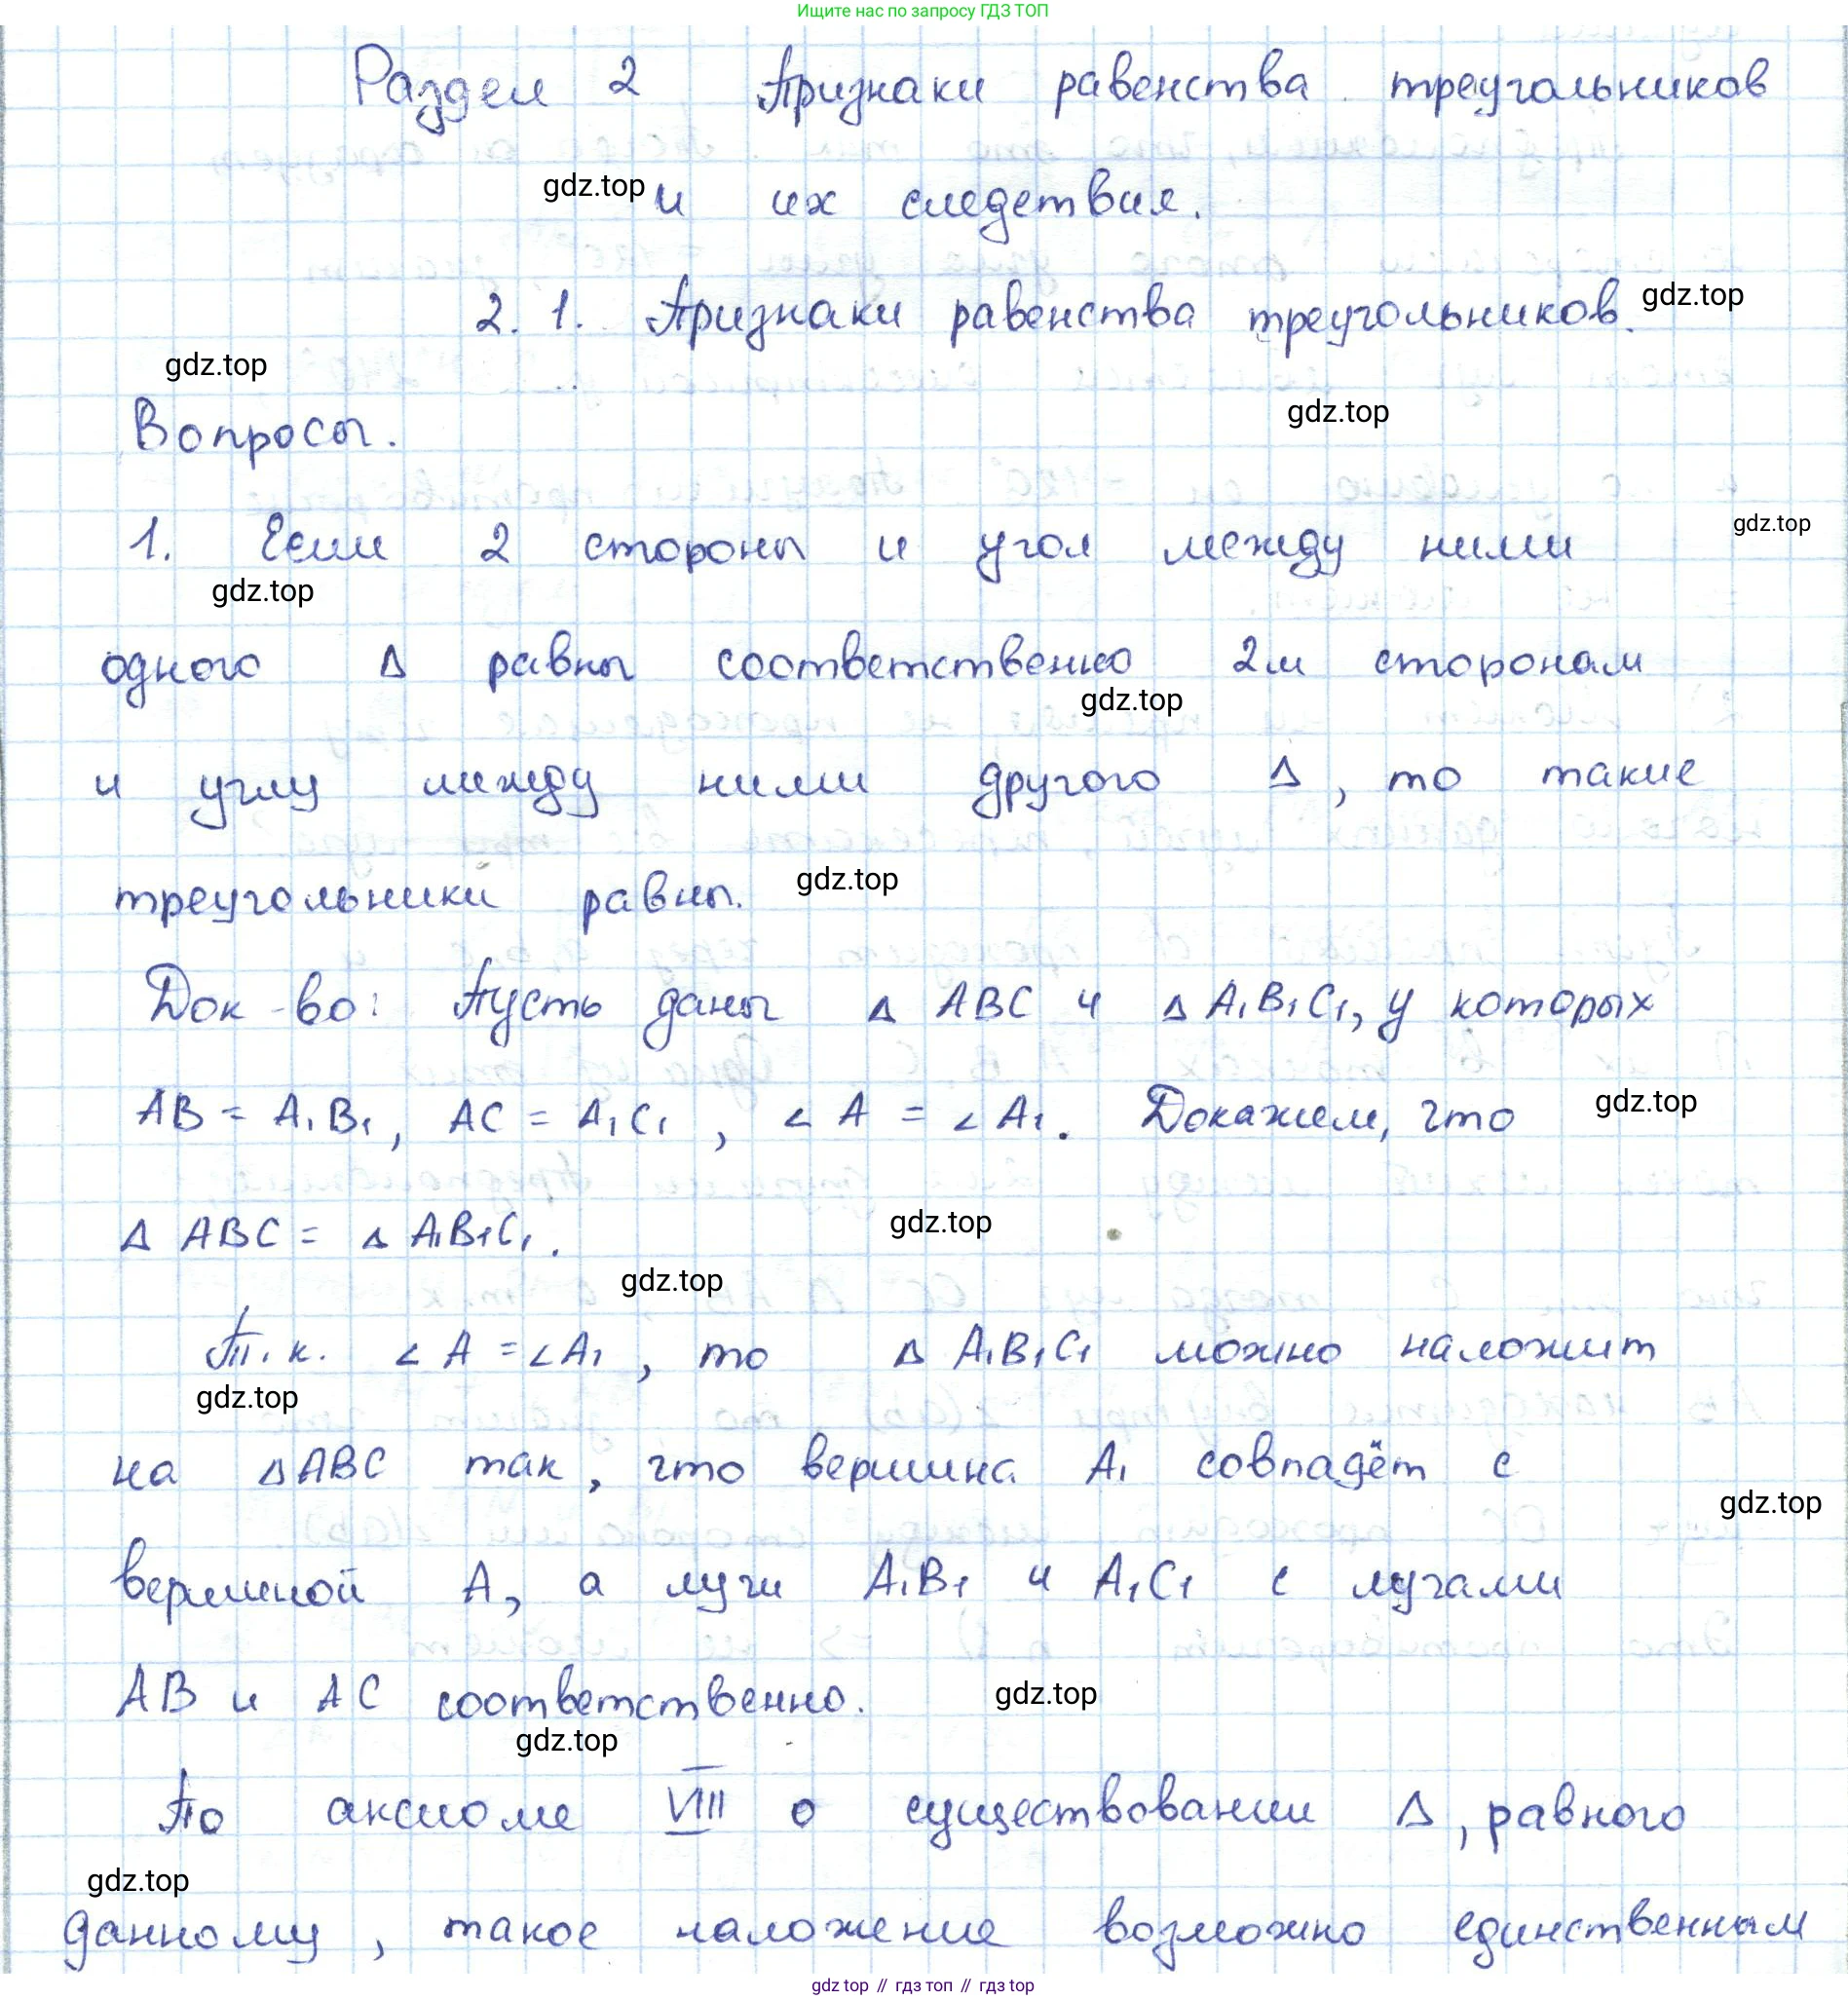 Ищите нас по запросу ГДЗ ТОП
Раздел 2 Признаки равенства треугольников
gdz.top и их следствия.
2. 1. Признаки равенства треугольников. gdz.top
gdz.top
gdz.top
Вопросы.
1. Если 2 стороны и угол между ними gdz.top
gdz.top
одного Δ равны соответственно 2м сторонам
gdz.top
и углу между ними другого Δ, то такие
треугольники равны. gdz.top
Док-во: Пусть даны Δ ABC и Δ A₁B₁C₁, у которых
AB = A₁B₁, AC = A₁C₁, ∠ A = ∠ A₁. Докажем, что gdz.top
Δ ABC = Δ A₁B₁C₁. gdz.top
gdz.top
Т.к. ∠ A = ∠A₁, то Δ A₁B₁C₁ можно наложит
gdz.top
на ΔABC так, что вершина A₁ совпадёт с
gdz.top
вершиной A, а лучи A₁B₁ и A₁C₁ с лучами
AB и AC соответственно. gdz.top
gdz.top
По аксиоме VIII о существовании Δ, равного
gdz.top
данному, такое наложение возможно единственным
gdz top // гдз топ // гдз top